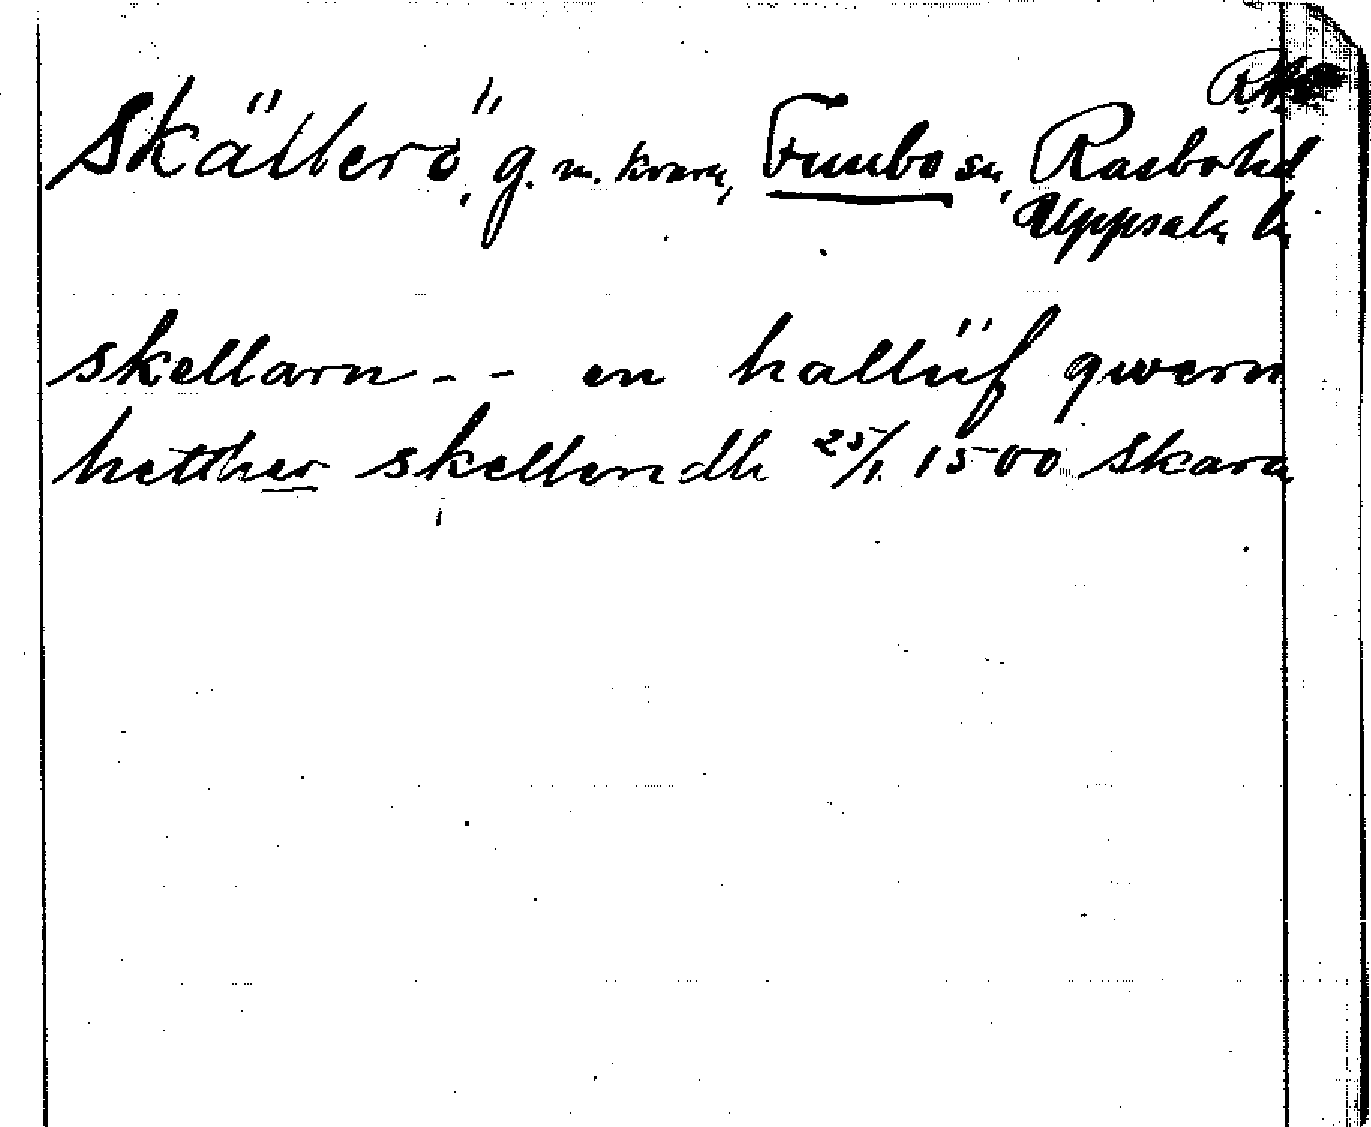 Skällerö, g. m. kvarn, Funbo sn, Rasbo hd
Uppsala l.
skellarn - - en hallüf qwern
hetther skellendh 25/1 1500 Skara